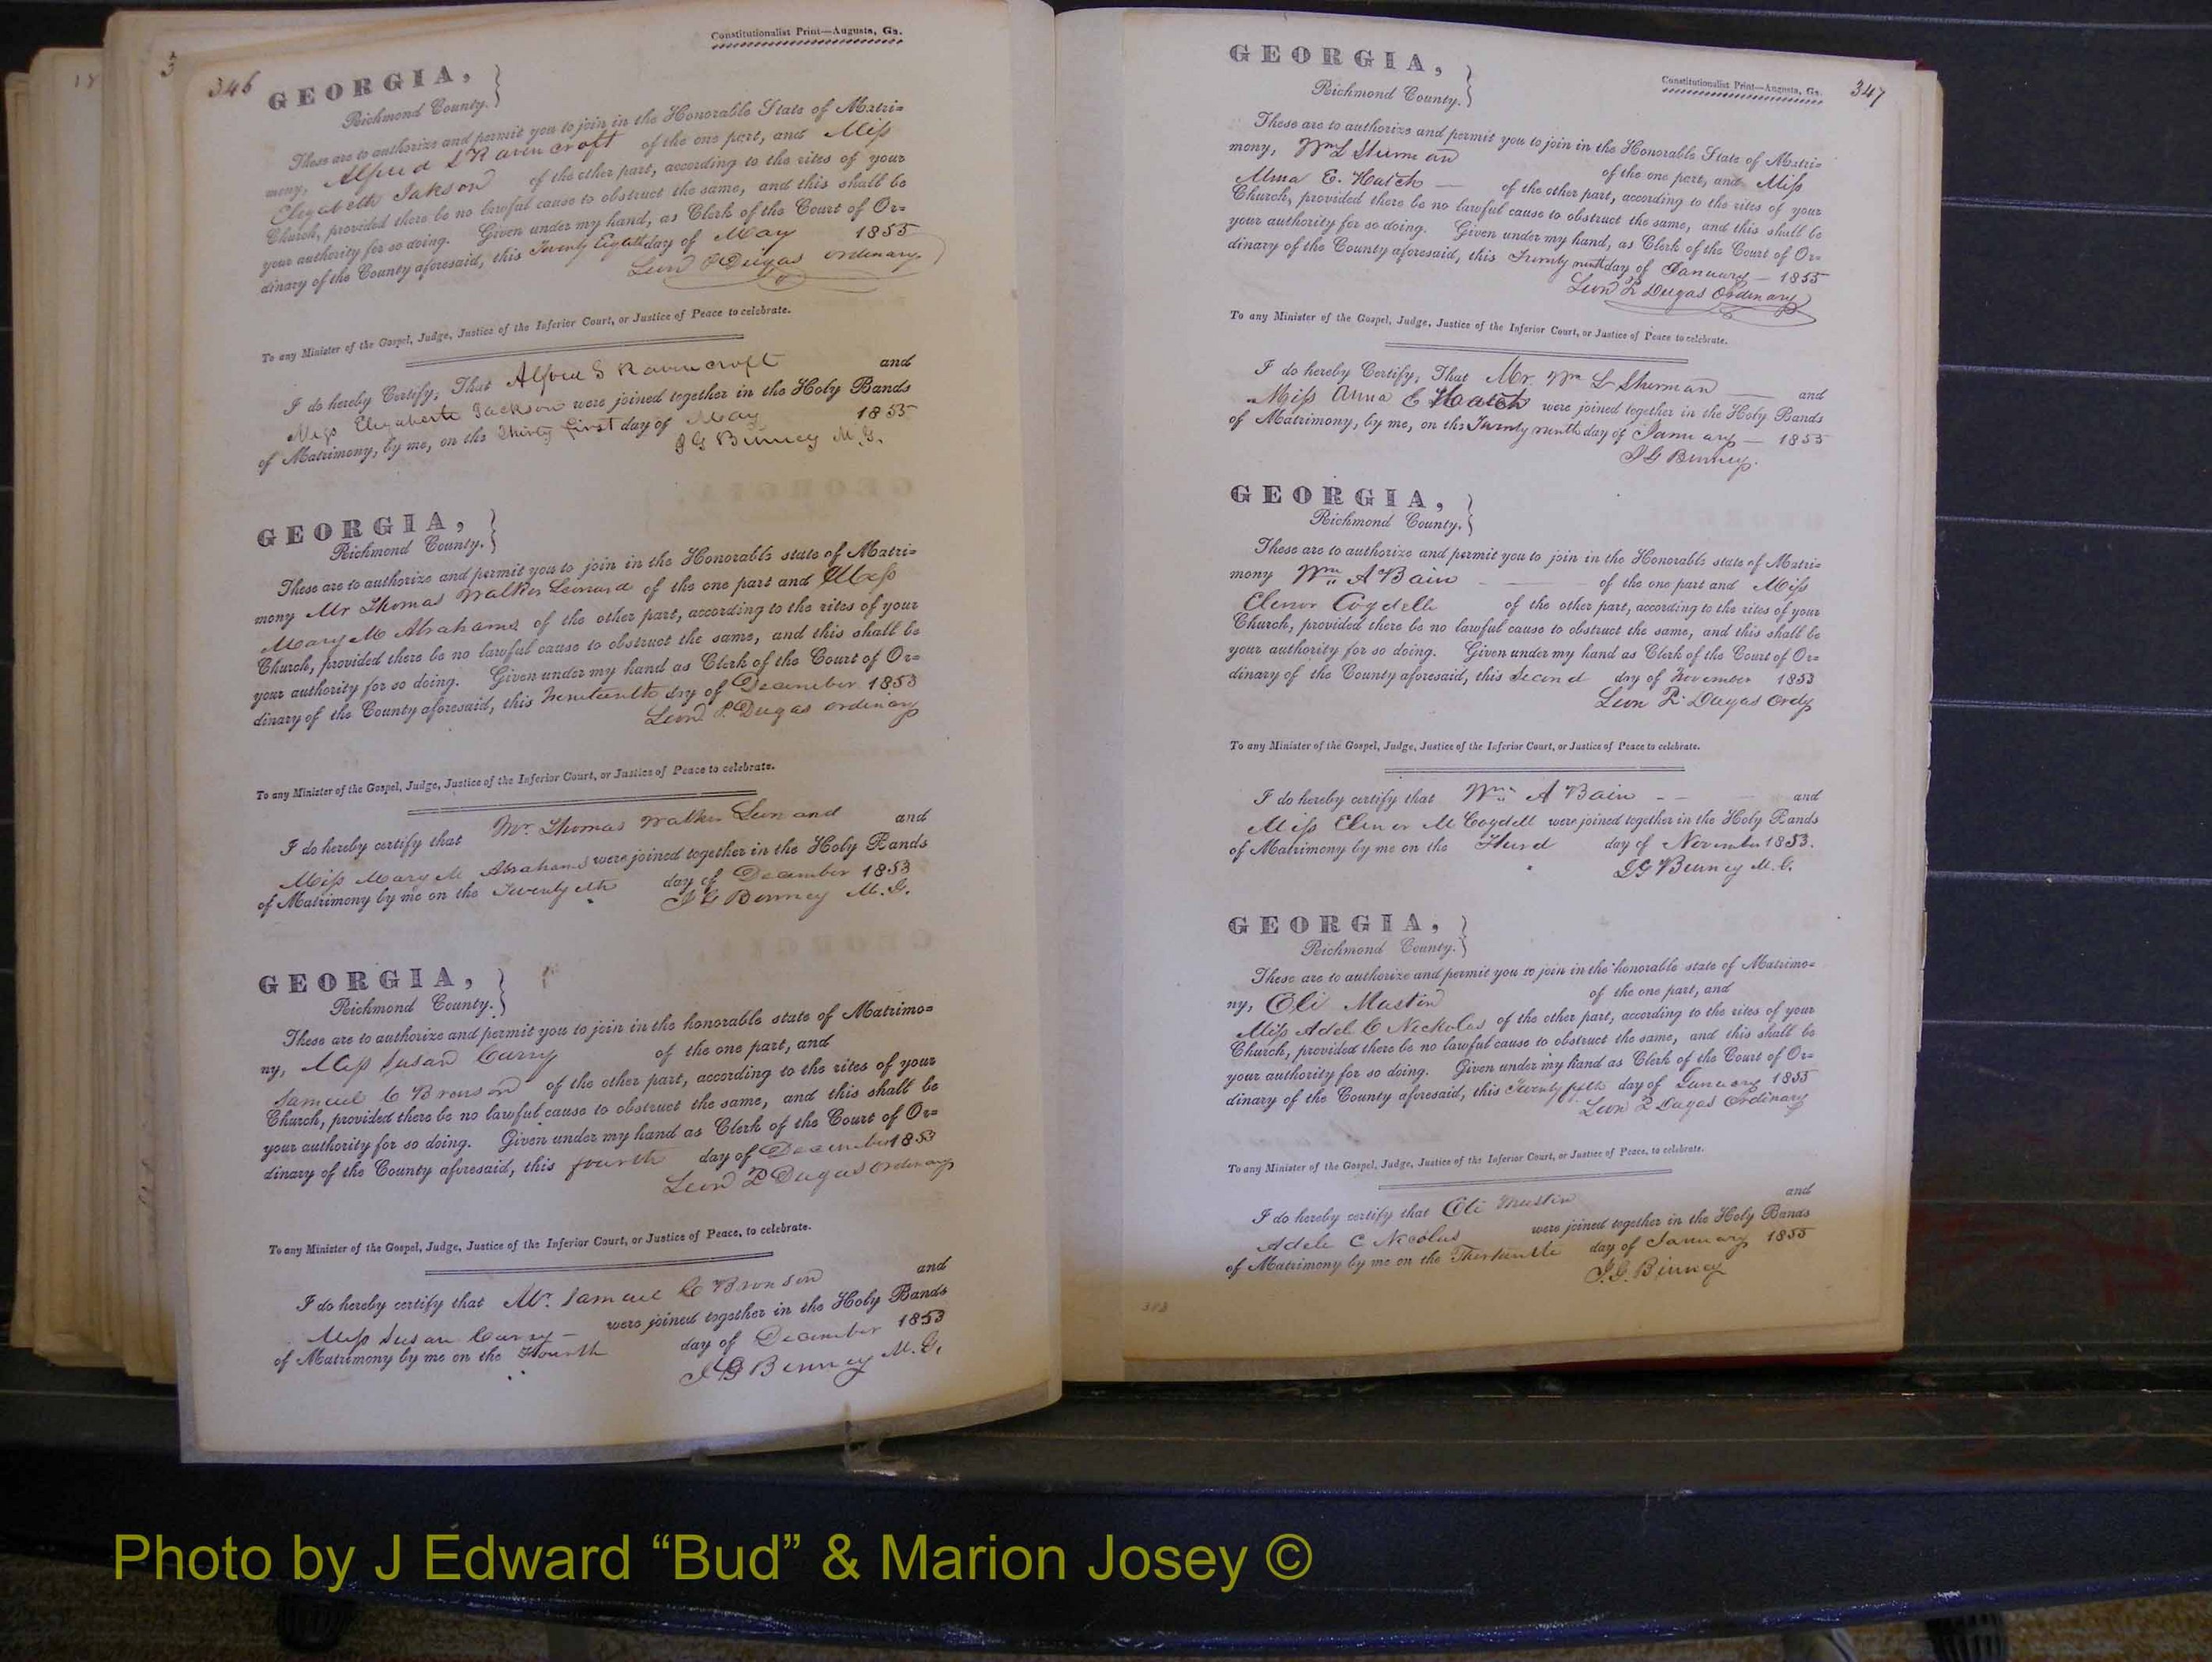 346
Constitutionalist Print—Augusta, Ga.
GEORGIA,
Richmond County.
These are to authorize and permit you to join in the Honorable State of Matri=
mony, Alfred S Ravencroft of the one part, and Miss
Elizabeth Jakson of the other part, according to the rites of your
Church, provided there be no lawful cause to obstruct the same, and this shall be
your authority for so doing. Given under my hand, as Clerk of the Court of Or=
dinary of the County aforesaid, this Twenty Eighth day of May 1855
Leon P Dugas ordinary
To any Minister of the Gospel, Judge, Justice of the Inferior Court, or Justice of Peace to celebrate.
I do hereby Certify, That Alfred S Ravencroft and
Miss Elizabeth Jackson were joined together in the Holy Bands
of Matrimony, by me, on the Thirty first day of May 1855
J G Binney M.G.
GEORGIA,
Richmond County.
These are to authorize and permit you to join in the Honorable state of Matri=
mony Mr Thomas Walker Leonard of the one part and Miss
Mary M Abrahams of the other part, according to the rites of your
Church, provided there be no lawful cause to obstruct the same, and this shall be
your authority for so doing. Given under my hand as Clerk of the Court of Or=
dinary of the County aforesaid, this Nineteenth day of December 1853
Leon P. Dugas ordinary
To any Minister of the Gospel, Judge, Justice of the Inferior Court, or Justice of Peace to celebrate.
I do hereby certify that Mr. Thomas Walker Leonard and
Miss Mary M Abrahams were joined together in the Holy Bands
of Matrimony by me on the Twentyeth day of December 1853
J G Binney M.G.
GEORGIA,
Richmond County.
These are to authorize and permit you to join in the honorable state of Matrimo=
ny, Miss Susan Curry of the one part, and
Samuel C Bronson of the other part, according to the rites of your
Church, provided there be no lawful cause to obstruct the same, and this shall be
your authority for so doing. Given under my hand as Clerk of the Court of Or=
dinary of the County aforesaid, this fourth day of December 1853
Leon P Dugas Ordinary
To any Minister of the Gospel, Judge, Justice of the Inferior Court, or Justice of Peace, to celebrate.
I do hereby certify that Mr. Samuel C Bronson and
Miss Susan Curry were joined together in the Holy Bands
of Matrimony by me on the Fourth day of December 1853
J G Binney M.G.
347
Constitutionalist Print—Augusta, Ga.
GEORGIA,
Richmond County.
These are to authorize and permit you to join in the Honorable State of Matri=
mony, Wm L Sherman of the one part, and Miss
Anna E. Hatch of the other part, according to the rites of your
Church, provided there be no lawful cause to obstruct the same, and this shall be
your authority for so doing. Given under my hand, as Clerk of the Court of Or=
dinary of the County aforesaid, this Twenty ninth day of January 1855
Leon P Dugas Ordinary
To any Minister of the Gospel, Judge, Justice of the Inferior Court, or Justice of Peace to celebrate.
I do hereby Certify, That Mr. Wm L Sherman and
Miss Anna E Hatch were joined together in the Holy Bands
of Matrimony, by me, on the Twenty ninth day of January 1855
J G Binney.
GEORGIA,
Richmond County.
These are to authorize and permit you to join in the Honorable state of Matri=
mony Wm A Bain of the one part and Miss
Elenor Cogdelle of the other part, according to the rites of your
Church, provided there be no lawful cause to obstruct the same, and this shall be
your authority for so doing. Given under my hand as Clerk of the Court of Or=
dinary of the County aforesaid, this Second day of November 1853
Leon P. Dugas Ordy
To any Minister of the Gospel, Judge, Justice of the Inferior Court, or Justice of Peace to celebrate.
I do hereby certify that Wm A Bain and
Miss Elenor M Cogdell were joined together in the Holy Bands
of Matrimony by me on the Third day of November 1853.
J G Binney M.G.
GEORGIA,
Richmond County.
These are to authorize and permit you to join in the honorable state of Matrimo=
ny, Eli Mustin of the one part, and
Miss Adele C Nickolas of the other part, according to the rites of your
Church, provided there be no lawful cause to obstruct the same, and this shall be
your authority for so doing. Given under my hand as Clerk of the Court of Or=
dinary of the County aforesaid, this Twenty fifth day of January 1855
Leon P Dugas Ordinary
To any Minister of the Gospel, Judge, Justice of the Inferior Court, or Justice of Peace, to celebrate.
I do hereby certify that Eli Mustin and
Adele C Nicolas were joined together in the Holy Bands
of Matrimony by me on the day of January 1855
J.G. Binney
Photo by J Edward “Bud” & Marion Josey ©